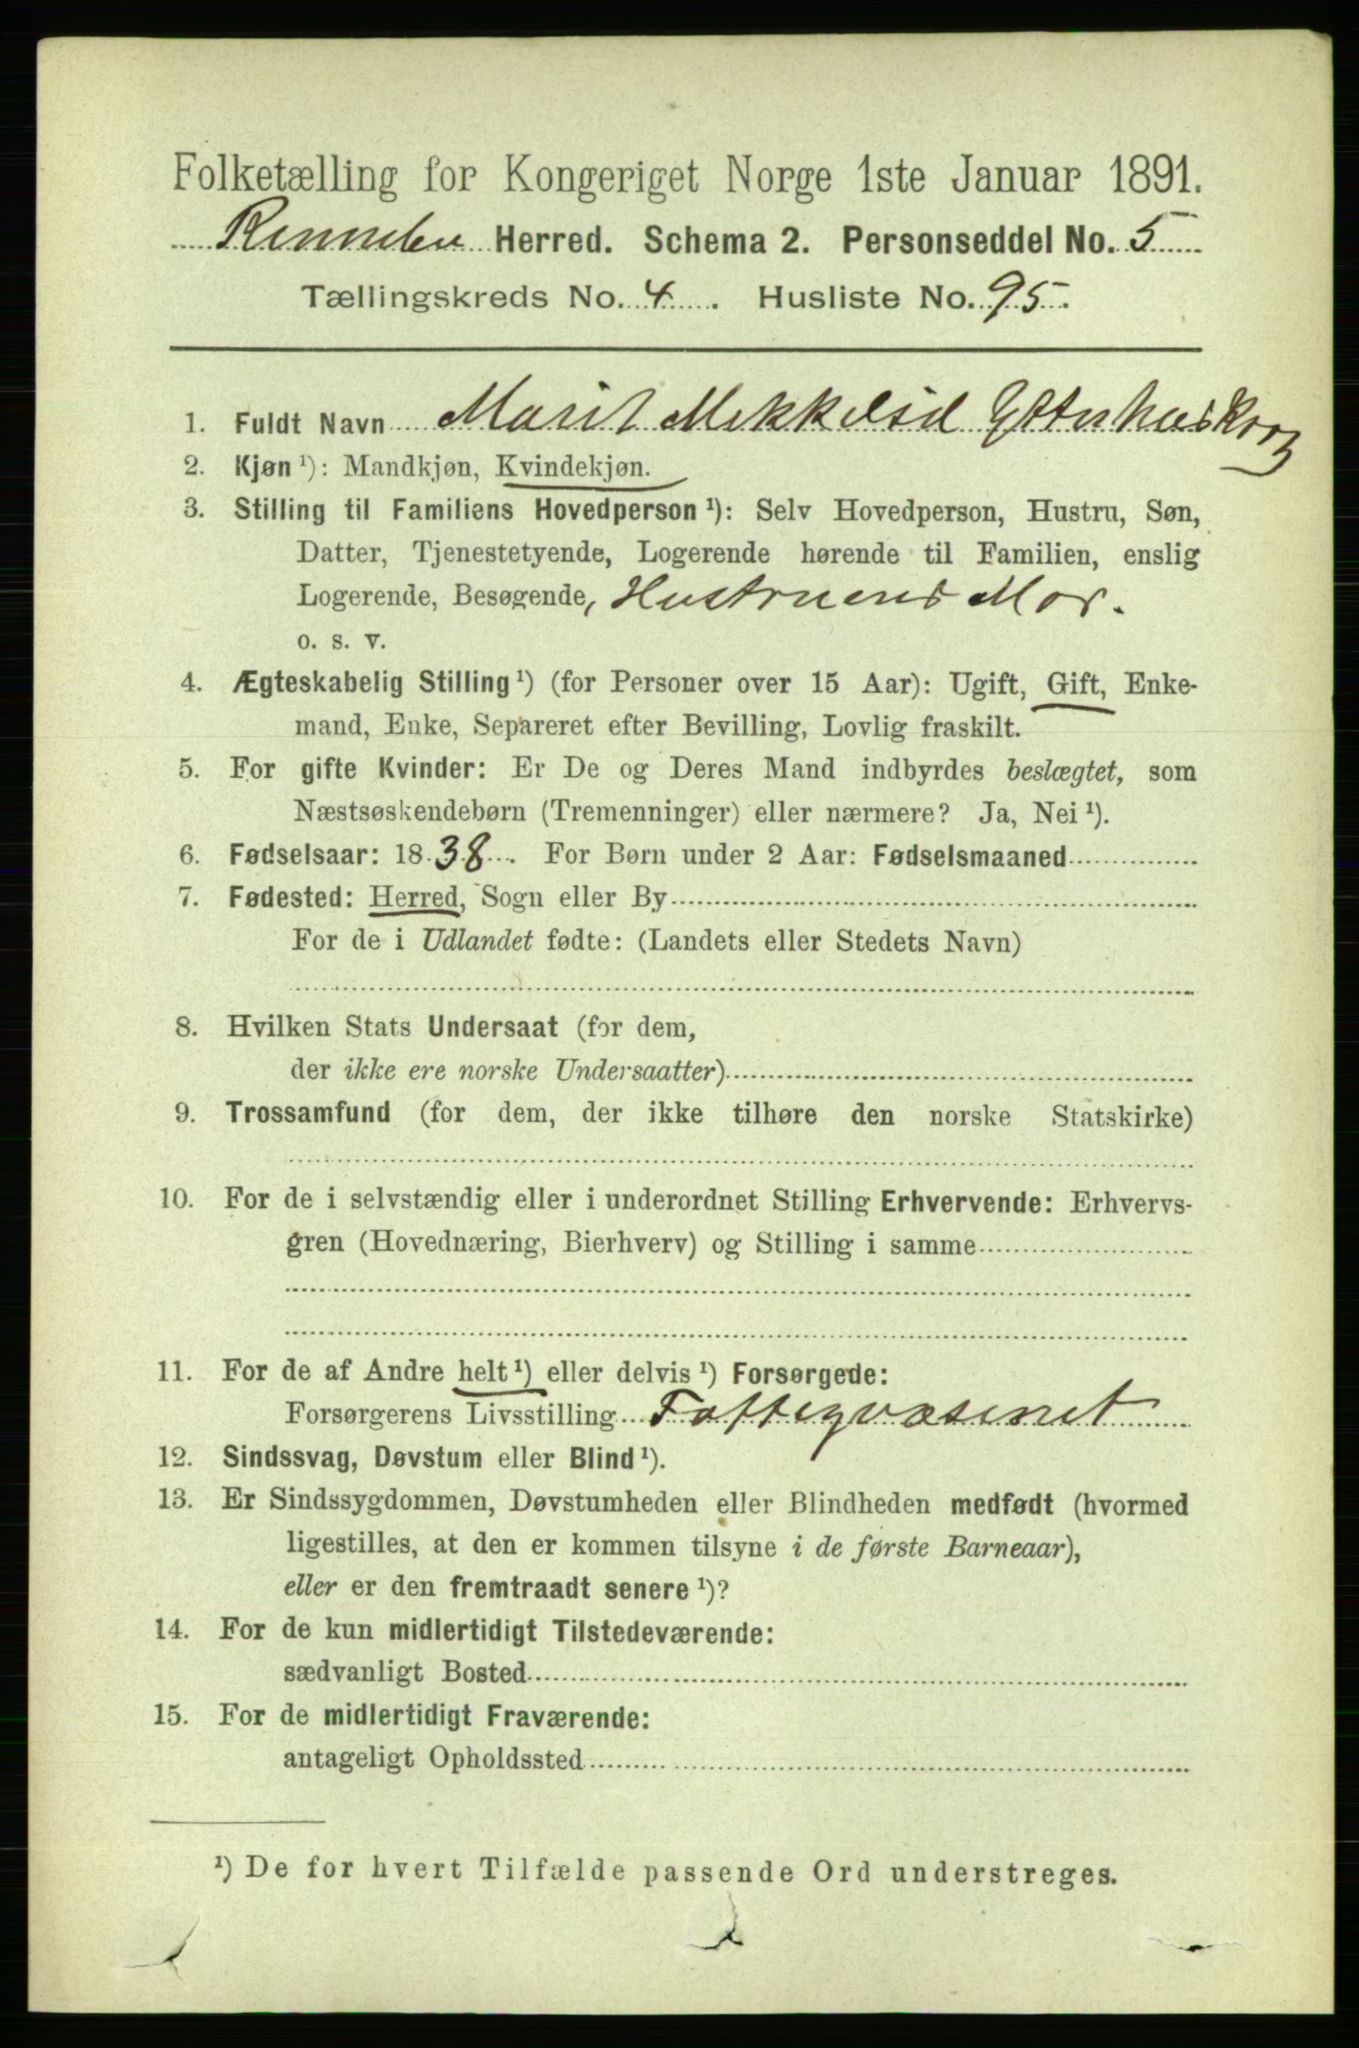 Folketælling for Kongeriget Norge 1ste Januar 1891.
Rennebu Herred. Schema 2. Personseddel No. 5
Tællingskreds No. 4. Husliste No. 95.
1. Fuldt Navn Marit Mikkelsd
2. Kjøn ¹): Mandkjøn, Kvindekjøn.
3. Stilling til Familiens Hovedperson ¹): Selv Hovedperson, Hustru, Søn,
Datter, Tjenestetyende, Logerende hørende til Familien, enslig
Logerende, Besøgende, Hustruens Mor.
o. s. v.
4. Ægteskabelig Stilling ¹) (for Personer over 15 Aar): Ugift, Gift, Enke-
mand, Enke, Separeret efter Bevilling, Lovlig fraskilt.
5. For gifte Kvinder: Er De og Deres Mand indbyrdes beslægtet, som
Næstsøskendebørn (Tremenninger) eller nærmere? Ja, Nei ¹).
6. Fødselsaar: 1838. For Børn under 2 Aar: Fødselsmaaned
7. Fødested: Herred, Sogn eller By
For de i Udlandet fødte: (Landets eller Stedets Navn)
8. Hvilken Stats Undersaat (for dem,
der ikke ere norske Undersaatter)
9. Trossamfund (for dem, der ikke tilhøre den norske Statskirke)
10. For de i selvstændig eller i underordnet Stilling Erhvervende: Erhvervs-
gren (Hovednæring, Bierhverv) og Stilling i samme
11. For de af Andre helt ¹) eller delvis ¹) Forsørgede:
Forsørgerens Livsstilling Fattigvæsenet
12. Sindssvag, Døvstum eller Blind ¹).
13. Er Sindssygdommen, Døvstumheden eller Blindheden medfødt (hvormed
ligestilles, at den er kommen tilsyne i de første Barneaar),
eller er den fremtraadt senere ¹)?
14. For de kun midlertidigt Tilstedeværende:
sædvanligt Bosted
15. For de midlertidigt Fraværende:
antageligt Opholdssted
¹) De for hvert Tilfælde passende Ord understreges.